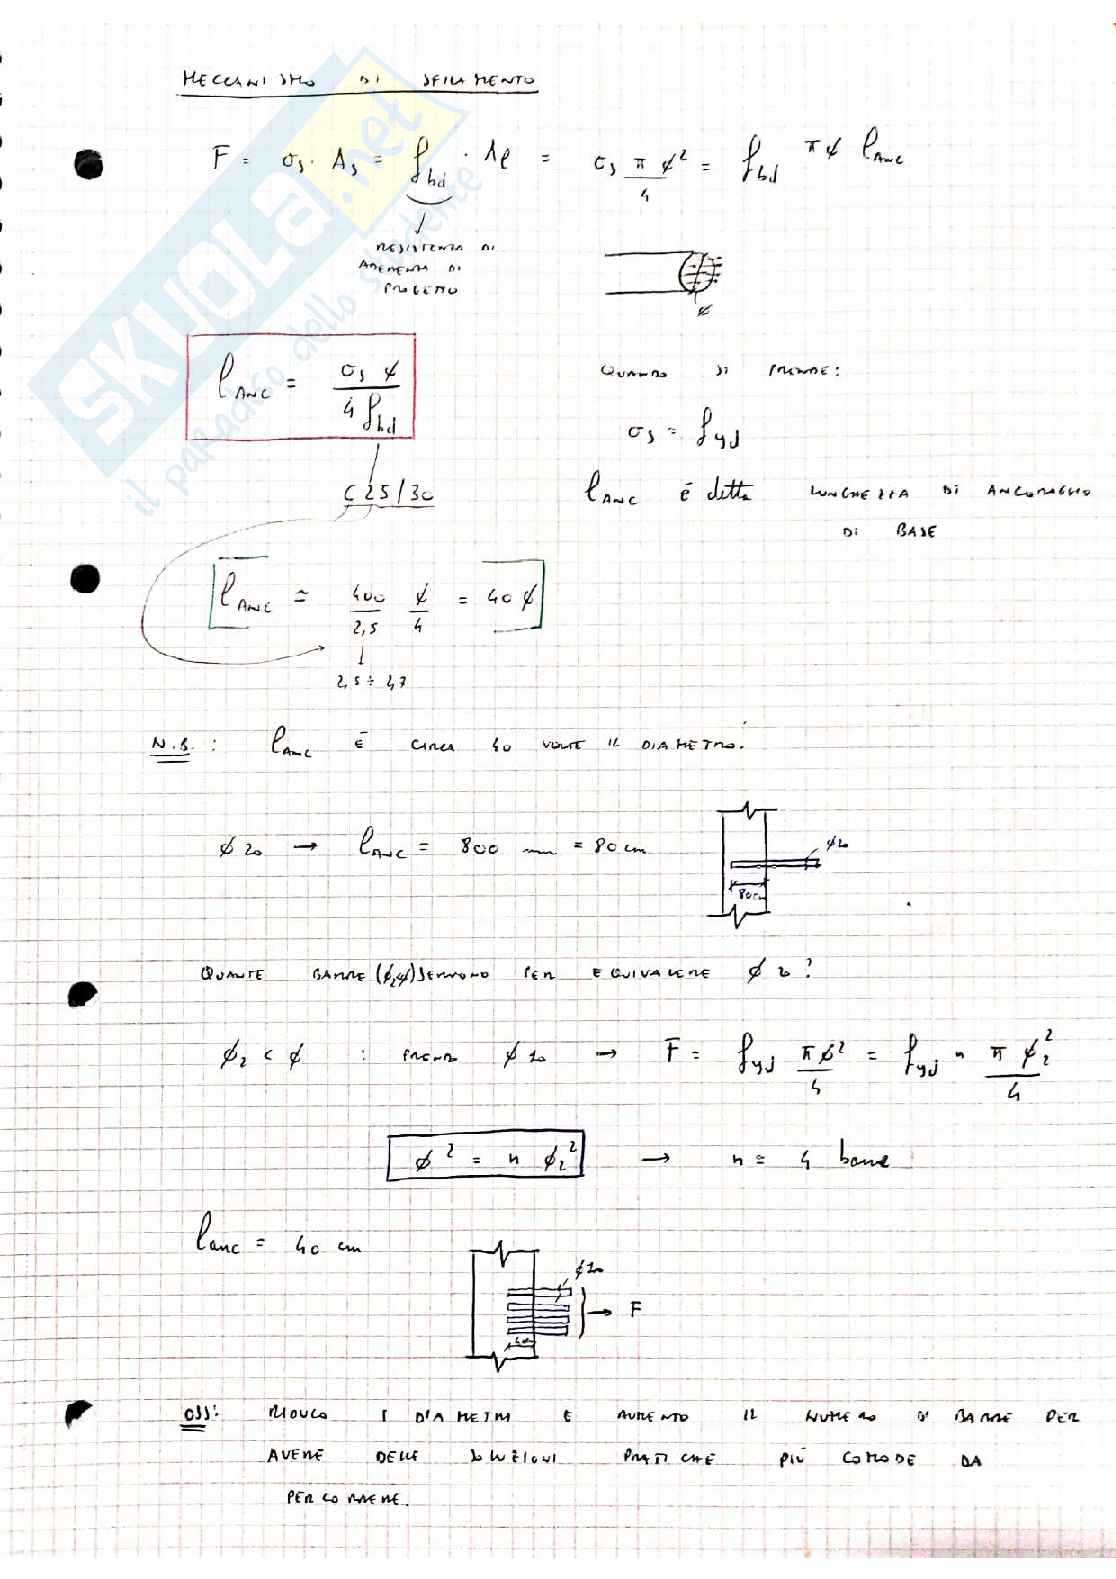 MECCANISMO DI SFILAMENTO
F = σs · As = fbd · Al = σs π ϕ²/4 = fbd π ϕ lANC
RESISTENZA DI
ADERENZA DI
PROGETTO
ϕ
lANC = σs ϕ / 4 fbd
QUANDO SI PRENDE:
σs = fyd
C25/30
lANC è detta LUNGHEZZA DI ANCORAGGIO
DI BASE
lANC ≃ 400/2,5 ϕ/4 = 40 ϕ
2,5 ÷ 2,7
N.B.: lANC È CIRCA 40 VOLTE IL DIAMETRO.
ϕ20 → lANC = 800 mm = 80 cm
ϕ20
80cm
QUANTE BARRE (ϕ2<ϕ) SERVONO PER EQUIVALERE ϕ20?
ϕ2 < ϕ : PRENDO ϕ10 → F = fyd πϕ²/4 = fyd n π ϕ2²/4
ϕ² = n ϕ2² → n = 4 barre
lANC = 40 cm
ϕ10
F
OSS: RIDUCO I DIAMETRI E AUMENTO IL NUMERO DI BARRE PER
AVERE DELLE SOLUZIONI PRATICHE PIÙ COMODE DA
PERCORRERE.
SKUOLA.net
il paradiso dello studente